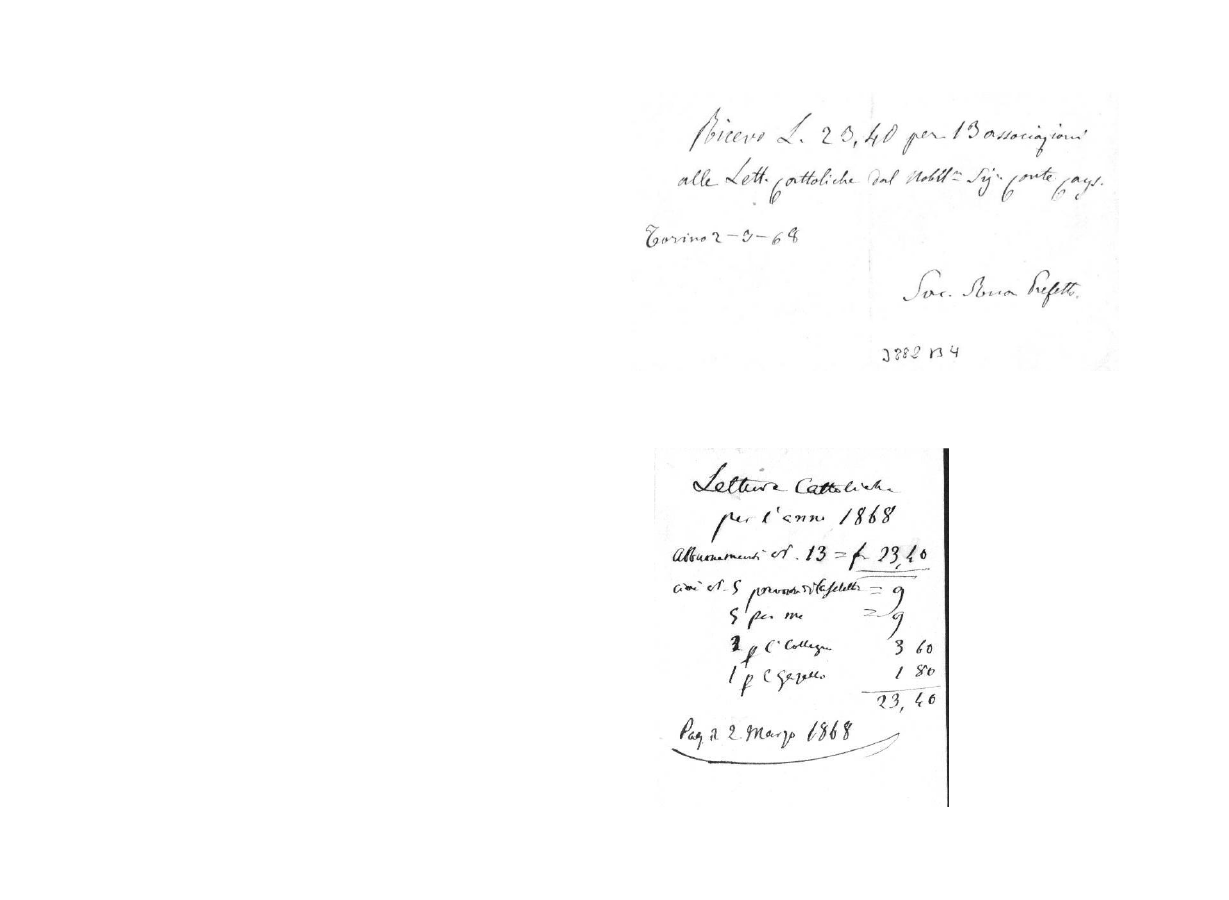 Ricevo L. 23,40 per 13 associazioni
alle Lett. Cattoliche dal Nobil.mo Sig. Conte Cays.
Torino 2-3-68
Sac. Rua Prefetto.
3882 B4
Letture Cattoliche
per l'anno 1868
Abbuonamenti N. 13 = f 23,40
cioè N. 5 = 9
5 per me = 9
2 p C. Collegno 3 60
1 p C 1 80
23,40
Pag. il 2 Marzo 1868